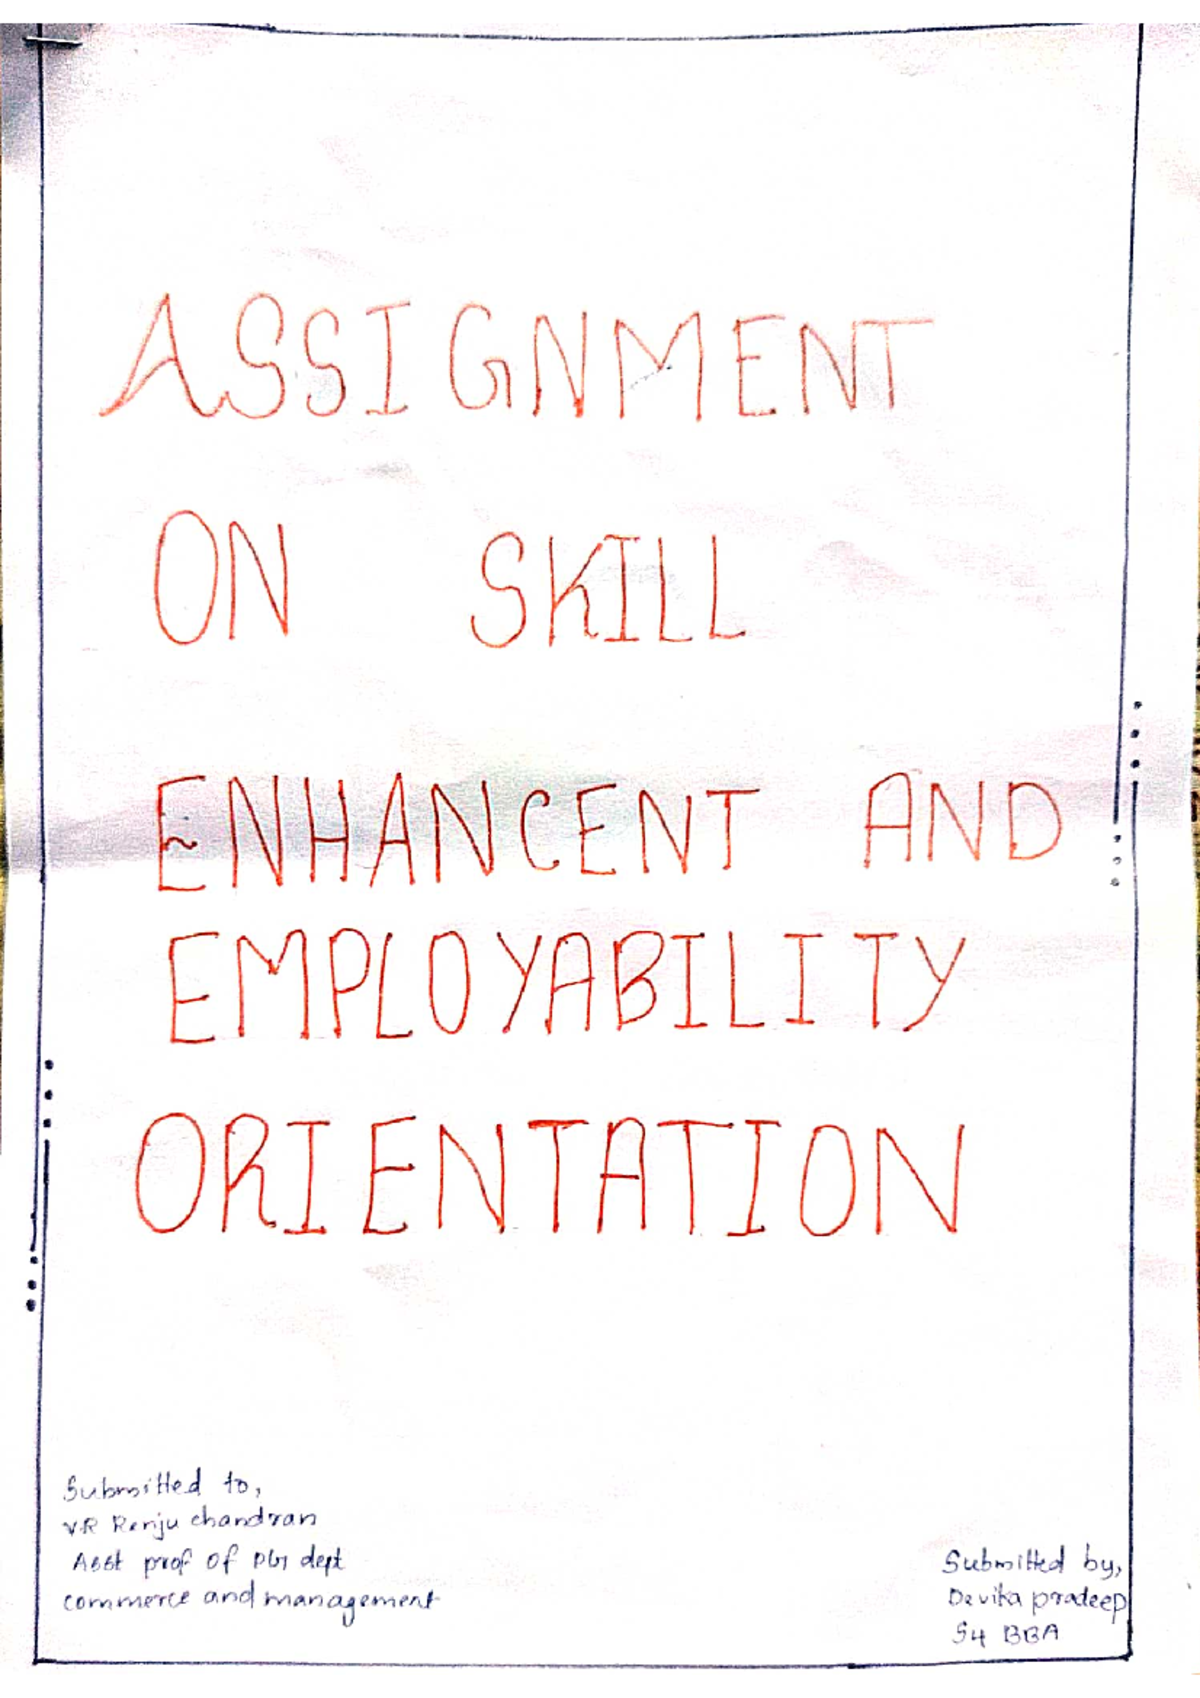 ASSIGNMENT
ON SKILL
ENHANCENT AND
EMPLOYABILITY
ORIENTATION
Submitted to,
VR Renju chandran
Asst prof of PG dept
commerce and management
Submitted by,
Devika pradeep
S4 BBA